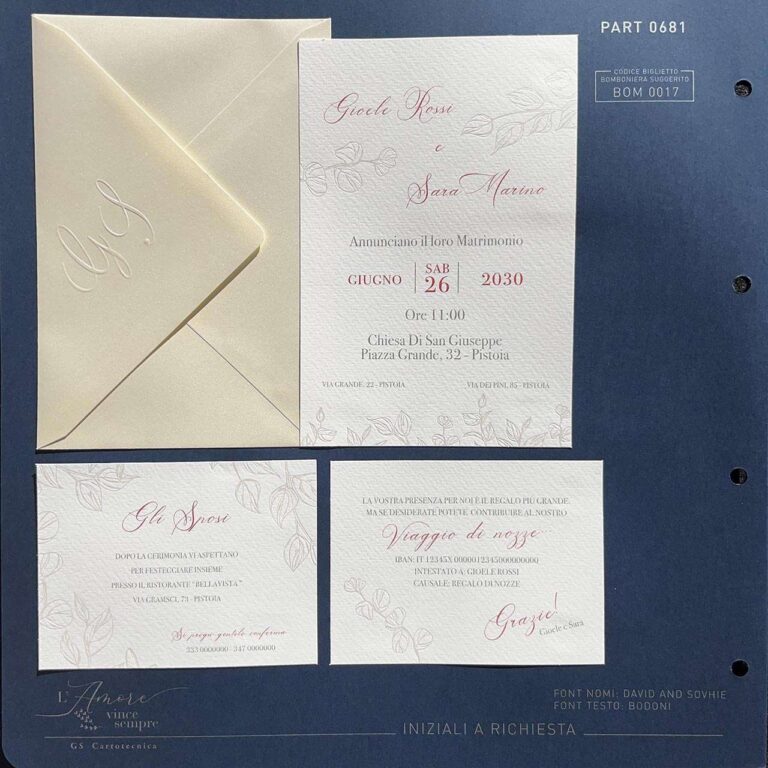 PART 0681
CODICE BIGLIETTO
BOMBONIERA SUGGERITO
BOM 0017
GS
Gioele Rossi
e
Sara Marino
Annunciano il loro Matrimonio
GIUGNO SAB 26 2030
Ore 11:00
Chiesa Di San Giuseppe
Piazza Grande, 32 - Pistoia
VIA GRANDE, 22 - PISTOIA VIA DEI PINI, 85 - PISTOIA
Gli Sposi
DOPO LA CERIMONIA VI ASPETTANO
PER FESTEGGIARE INSIEME
PRESSO IL RISTORANTE "BELLAVISTA"
VIA GRAMSCI, 73 - PISTOIA
Si prega gentile conferma
333 0000000 - 347 0000000
LA VOSTRA PRESENZA PER NOI È IL REGALO PIÙ GRANDE,
MA SE DESIDERATE POTETE CONTRIBUIRE AL NOSTRO
Viaggio di nozze...
IBAN: IT 12345X 0000012345000000000
INTESTATO A: GIOELE ROSSI
CAUSALE: REGALO DI NOZZE
Grazie!
Gioele e Sara
L'Amore
vince
sempre
GS Cartotecnica
FONT NOMI: DAVID AND SOVHIE
FONT TESTO: BODONI
INIZIALI A RICHIESTA